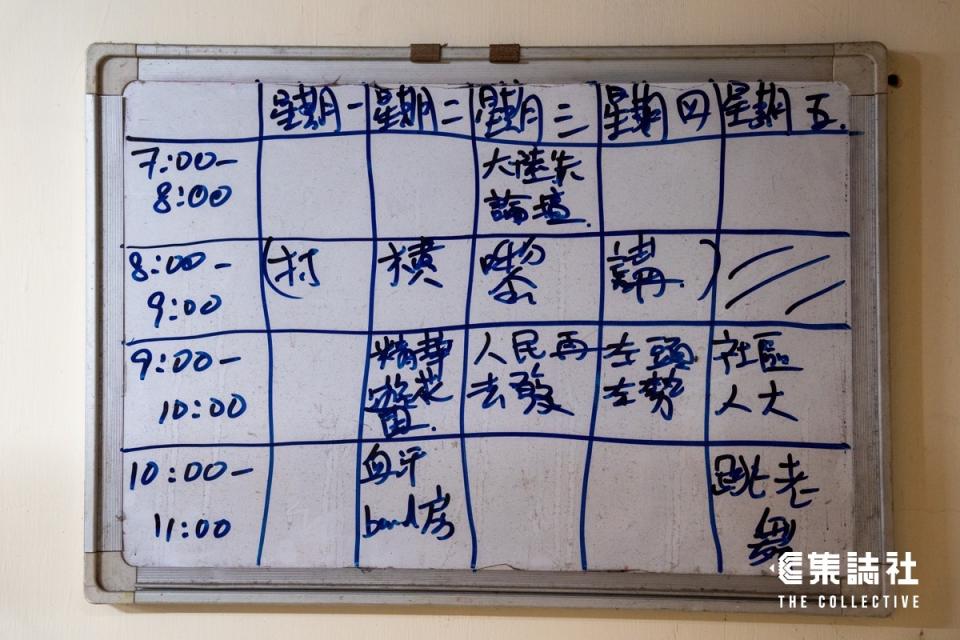 星期一 星期二 星期三 星期四 星期五.
7:00-
8:00
大陸失
論壇
8:00-
9:00
(打 橫 嚟 講)
9:00-
10:00
精華
遊花
園
人民再
去發
左頭
左勢
社區
人大
10:00-
11:00
血汗
band房
跳老
舞
集誌社
THE COLLECTIVE